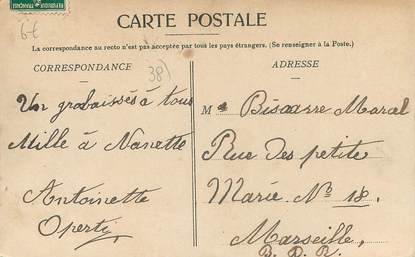 REPUBLIQUE FRANÇAISE
6€
CARTE POSTALE
La correspondance au recto n'est pas acceptée par tous les pays étrangers. (Se renseigner à la Poste.)
CORRESPONDANCE
38)
Un grobaissés à tous
Mille à Nanette
Antoinette
Operti
ADRESSE
M Marcel
Rue des petite
Marie. No 18.
Marseille,
B. D. R.